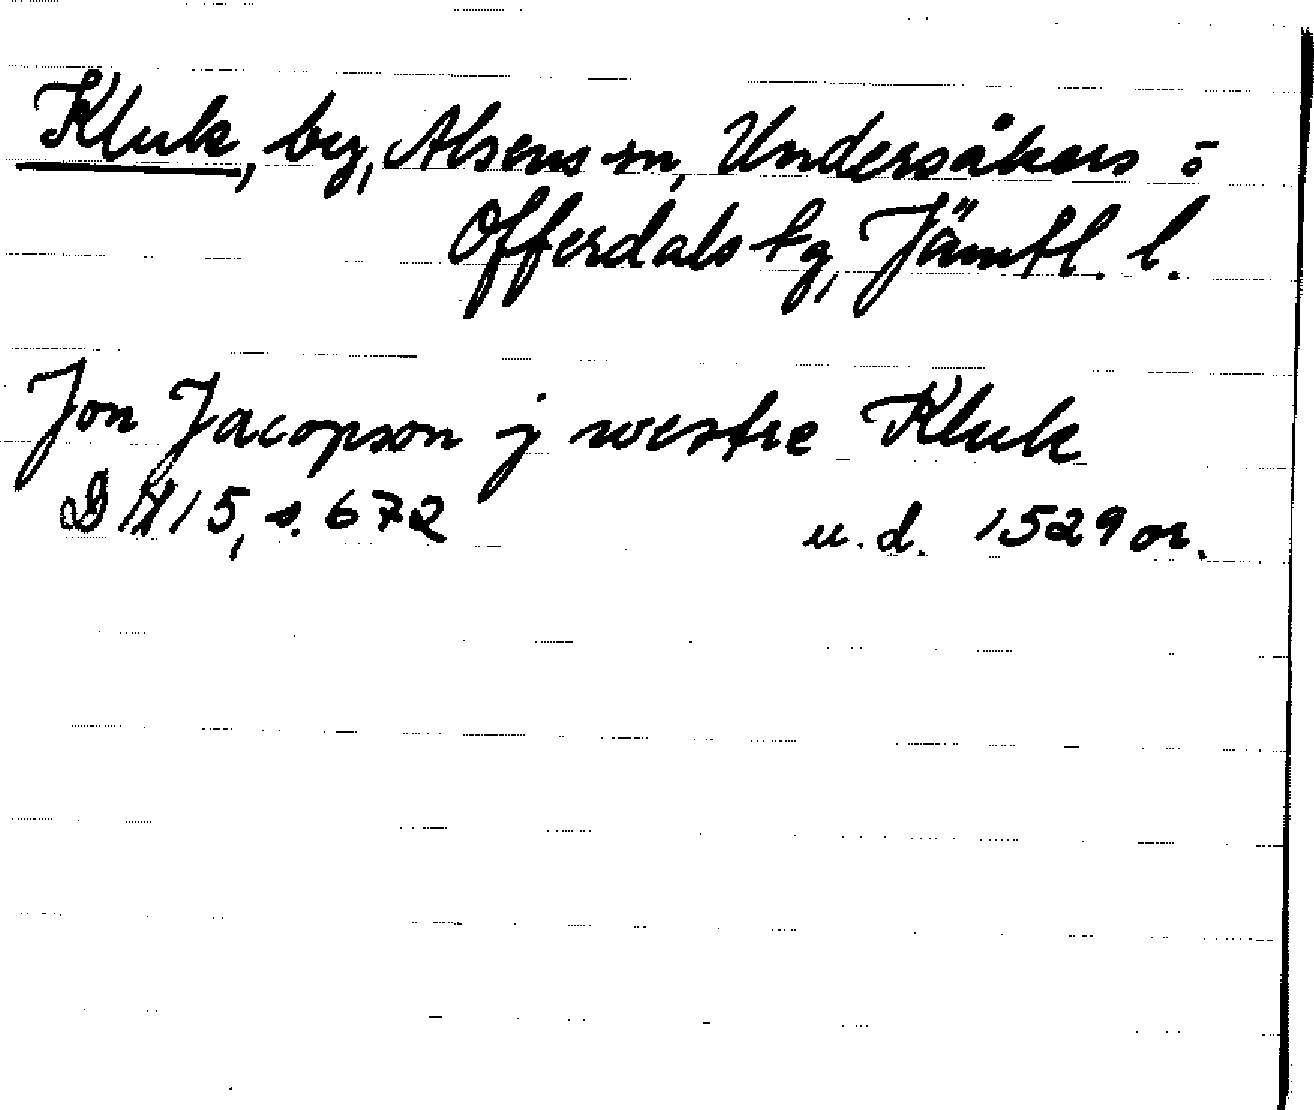 Kluk, by, Alsens sn, Undersåkers o
Offerdals tg, Jämtl. l.
Jon Jacopson j westre Kluk
u.d. 1529 or.